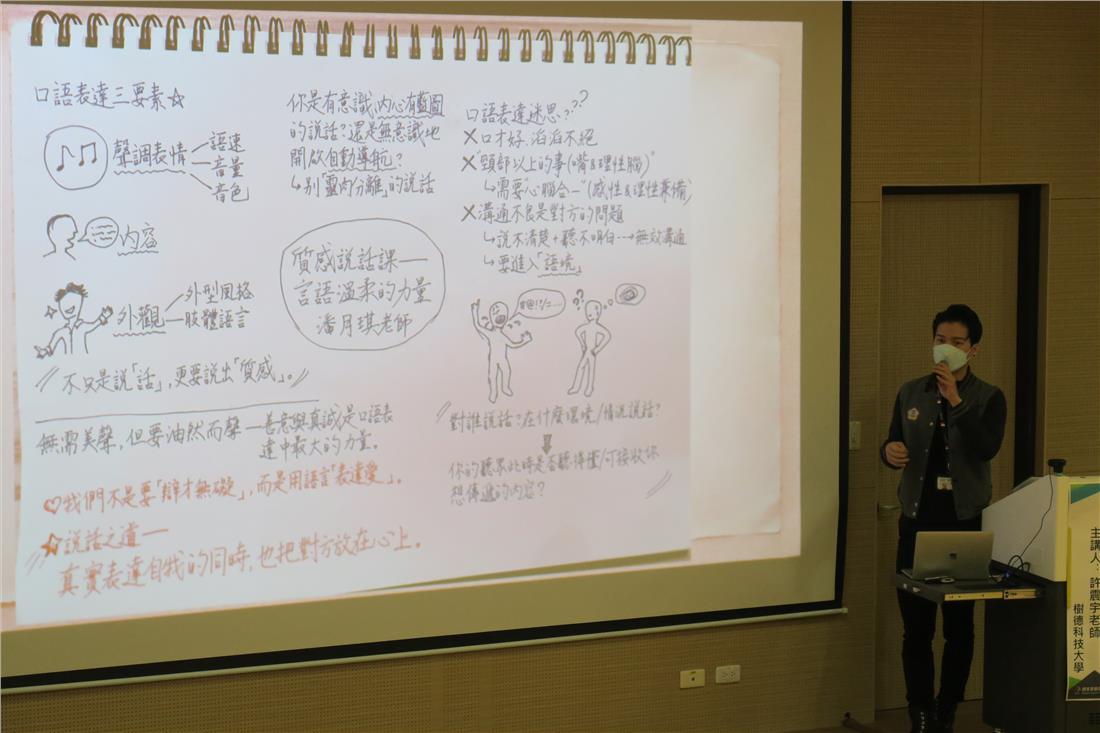 口語表達三要素☆
聲調表情
語速
音量
音色
內容
外觀
外型風格
肢體語言
不只是說「話」，更要說出「質感」。
你是有意識、內心有藍圖
的說話？還是無意識地
開啟自動導航？
↳別「靈肉分離」的說話
質感說話課—
言語溫柔的力量
潘月琪老師
口語表達迷思???
✗口才好、滔滔不絕
✗"頸部以上的事(嘴&理性腦)"
↳需要心腦合一"(感性&理性兼備)
✗溝通不良是對方的問題
↳說不清楚+聽不明白→無效溝通
↳要進入「語境」
#@!%=...
???
對誰說話？在什麼環境/情況說話？
你的聽眾此時是否聽得懂/可接收你
想傳遞的內容？
無需美聲，但要油然而聲—善意與真誠是口語表
達中最大的力量。
♡我們不是要「辯才無礙」，而是用語言「表達愛」。
☆說話之道—
真實表達自我的同時，也把對方放在心上。
主講人：許震宇老師
樹德科技大學